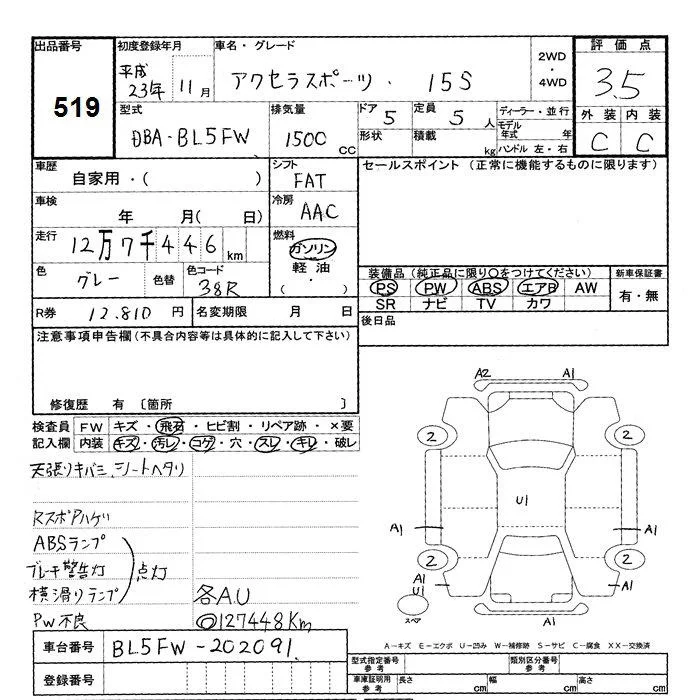 出品番号 初度登録年月 車名・グレード 2WD・4WD 評価点
519 平成23年 11月 アクセラスポーツ・ 15S 3.5
型式 排気量 ドア 5 定員 5人 ディーラー・並行 外装 内装
DBA-BL5FW 1500CC 形状 積載 kg モデル年式 年 C C
ハンドル 左・右
車歴 シフト セールスポイント(正常に機能するものに限ります)
自家用・( ) FAT
車検 冷房
年 月( 日) AAC
走行 12万7千446km 燃料
ガソリン
軽油
・( )
色 グレー 色替 色コード 38R
装備品(純正品に限り○をつけてください) 新車保証書
PS PW ABS エアB AW 有・無
SR ナビ TV カワ
R券 12,810円 名変期限 月 日 後日品
注意事項申告欄(不具合内容等は具体的に記入して下さい)
修復歴 有〔箇所 〕
検査員 FW キズ・飛石・ヒビ割・リペア跡・×要
記入欄 内装 キズ・汚レ・コゲ・穴・スレ・キレ・破レ
天張りキバミ、シートヘタリ
Rスポアハゲリ
ABSランプ
ブレーキ警告灯 点灯
横滑りランプ
PW不良
各A.U
◎127448Km
A2 A1
2 2
U1
A1 A1
2 2
A1
U1
スペア A1
A-キズ E-エクボ U-凹み W-補修跡 S-サビ C-腐食 XX-交換済
車台番号 BL5FW-202091
登録番号
型式指定番号 参考 類別区分番号 参考
車庫証明用 参考 長さ cm 幅 cm 高さ cm